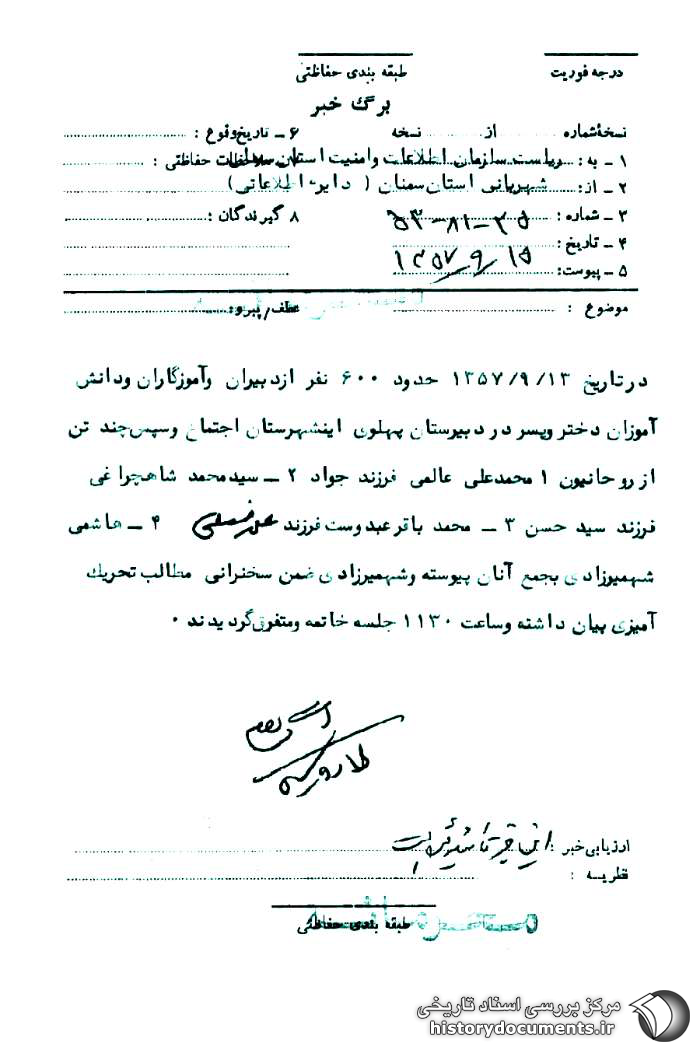 درجه فوریت
طبقه بندی حفاظتی
برگ خبر
نسخهٔ شماره از نسخه
۱ ـ به : ریاست سازمان اطلاعات وامنیت استان
۲ ـ از : شهربانی استان سمنان ( دایره اطلاعاتی )
۳ ـ شماره : ۲۵-۸۱-۵۳
۴ ـ تاریخ : ۱۳۵۷/۹/۱۵
۵ ـ پیوست:
۶ ـ تاریخ وقوع :
ملاحظات حفاظتی :
۸ گیرندگان :
موضوع :
عطف/پیرو:
درتاریخ ۱۳۵۷/۹/۱۳ حدود ۶۰۰ نفر ازدبیران وآموزگاران ودانش
آموزان دختر وپسر در دبیرستان پهلوی اینشهرستان اجتماع وسپس چند تن
از روحانیون ۱ محمدعلی عالمی فرزند جواد ۲ ــ سیدمحمد شاهچراغی
فرزند سید حسن ۳ ــ محمد باقر عبدوست فرزند ۴ ــ هاشمی
شهمیرزادی بجمع آنان پیوسته وشهمیرزادی ضمن سخنرانی مطالب تحریك
آمیزی بیان داشته وساعت ۱۱۳۰ جلسه خاتمه ومتفرق گردیدند ۰
ارزیابی خبر : این خبر تائید
نظریه :
طبقه بندی حفاظتی
مرکز بررسی اسناد تاریخی
historydocuments.ir